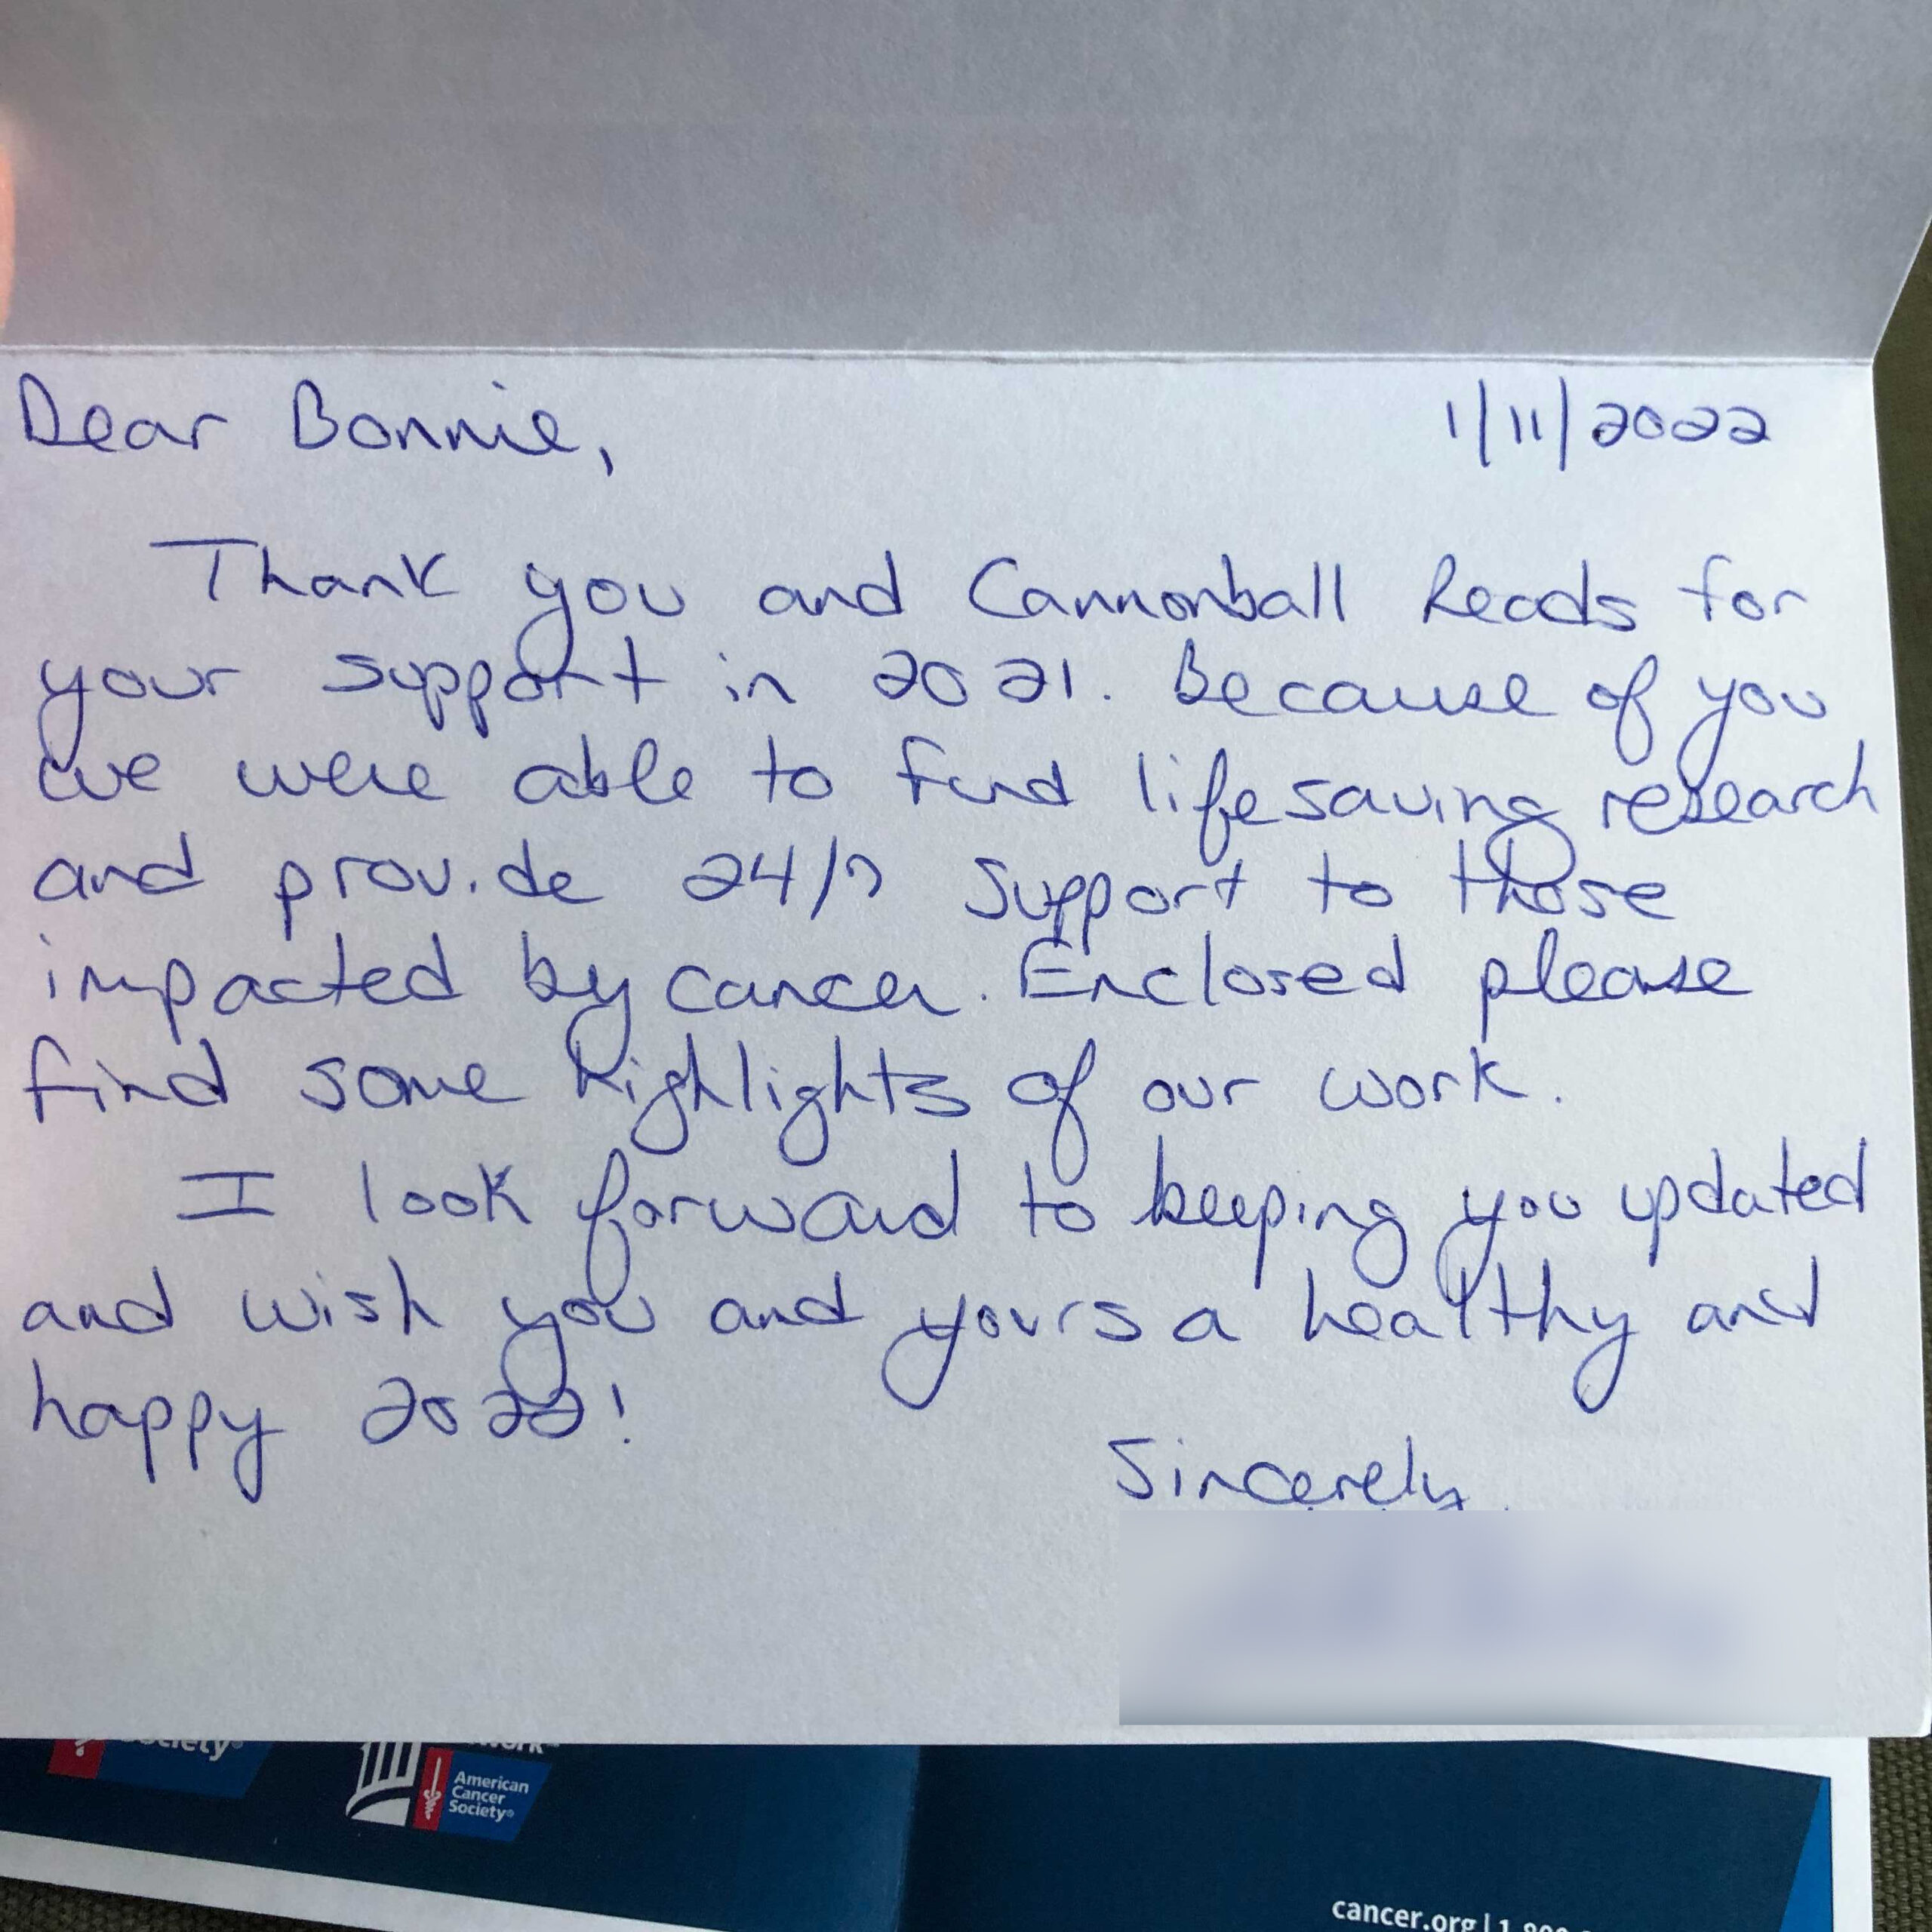 Dear Bonnie,
1/11/2022
Thank you and Cannonball Reads for
your support in 2021. Because of you
we were able to fund lifesaving research
and provide 24/7 support to those
impacted by cancer. Enclosed please
find some highlights of our work.
I look forward to keeping you updated
and wish you and yours a healthy and
happy 2022!
Sincerely,
Society®
American
Cancer
Society®
cancer.org | 1.800